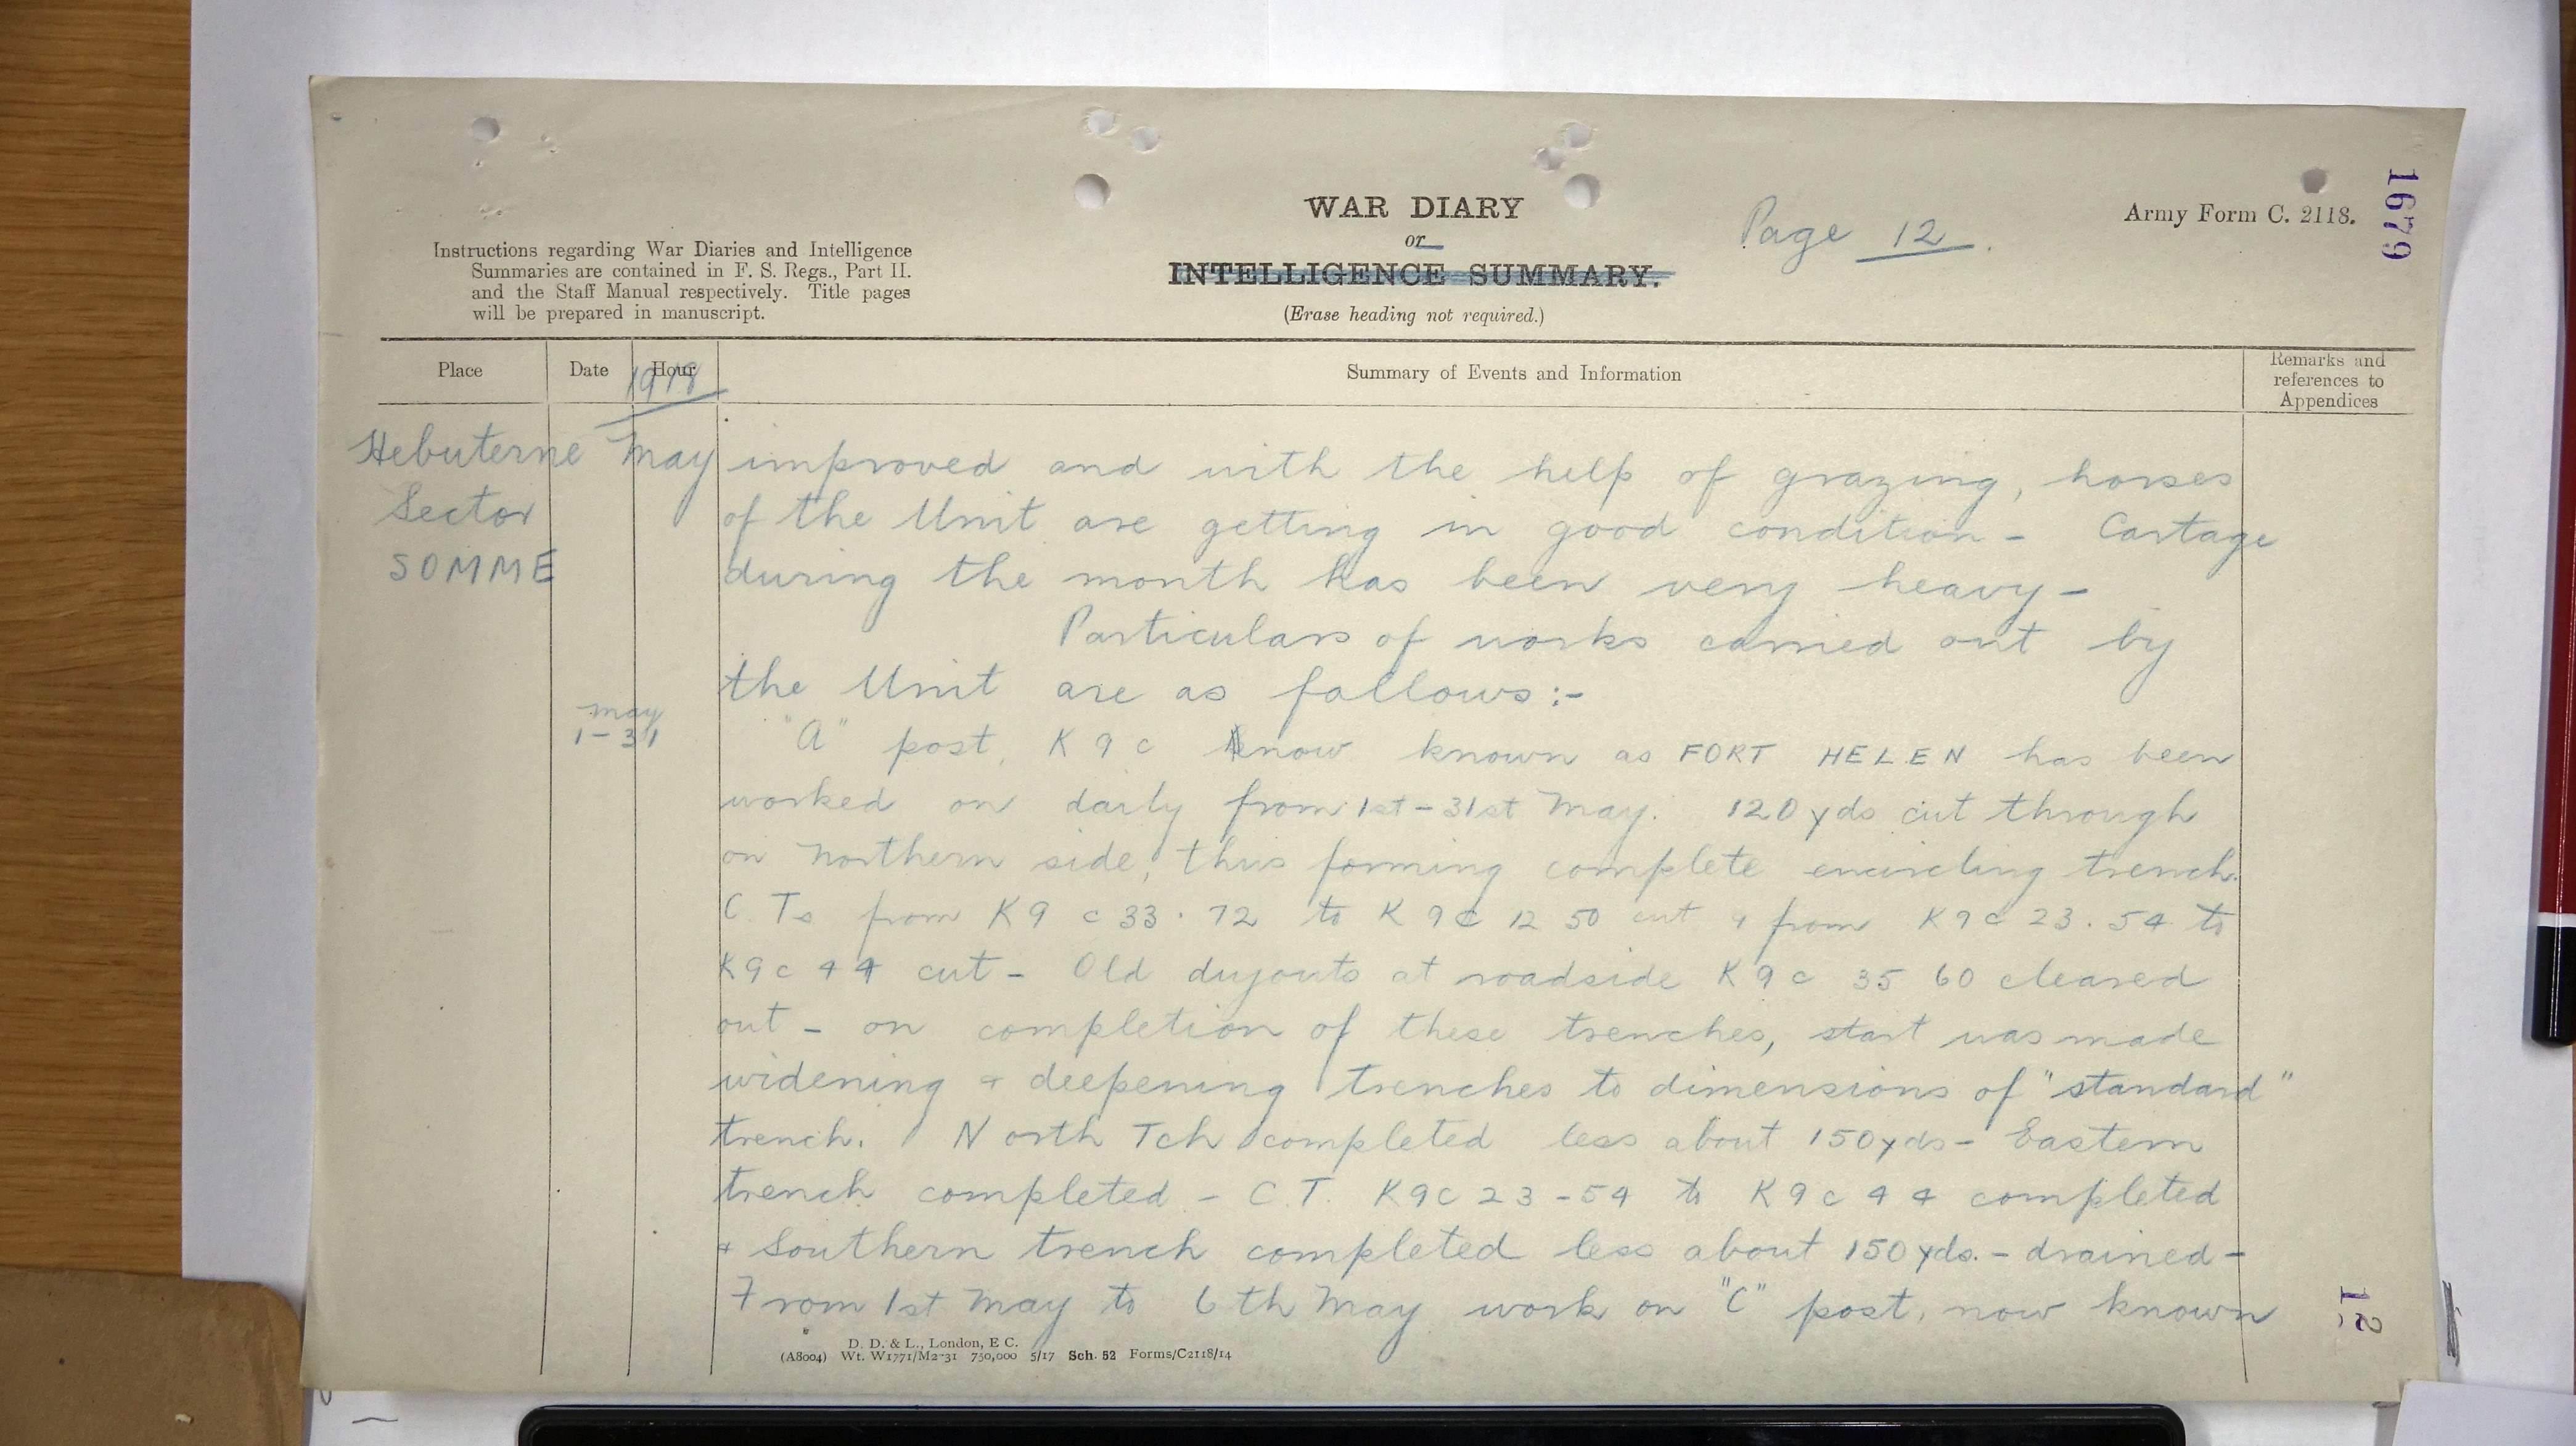 WAR DIARY
or
INTELLIGENCE SUMMARY.
(Erase heading not required.)
Page 12.
Army Form C. 2118.
1679
Instructions regarding War Diaries and Intelligence
Summaries are contained in F. S. Regs., Part II.
and the Staff Manual respectively. Title pages
will be prepared in manuscript.
Place
Date
Hour
1918
Summary of Events and Information
Remarks and
references to
Appendices
Hebuterne
Sector
SOMME
May
improved and with the help of grazing, horses
of the Unit are getting in good condition - Cartage
during the month has been very heavy -
Particulars of works carried out by
the Unit are as follows:-
May
1-31
"A" post, K 9 c now known as FORT HELEN has been
worked on daily from 1st - 31st May. 120 yds cut through
on northern side, thus forming complete encircling trench.
C. Ts from K9 c 33.72 to K 9 c 12 50 cut & from K9c 23.54 to
K9c 4 4 cut - Old dugouts at roadside K 9 c 35 60 cleared
out - on completion of these trenches, start was made
widening & deepening trenches to dimensions of "standard"
trench. North Tch completed less about 150 yds - Eastern
trench completed - C.T. K9c 23-54 to K9c 4 4 completed
& Southern trench completed less about 150 yds. - drained -
From 1st May to 6th May work on "C" post, now known
D. D. & L., London, E C.
(A8004) Wt. W1771/M2-31 750,000 5/17 Sch. 52 Forms/C2118/14
12